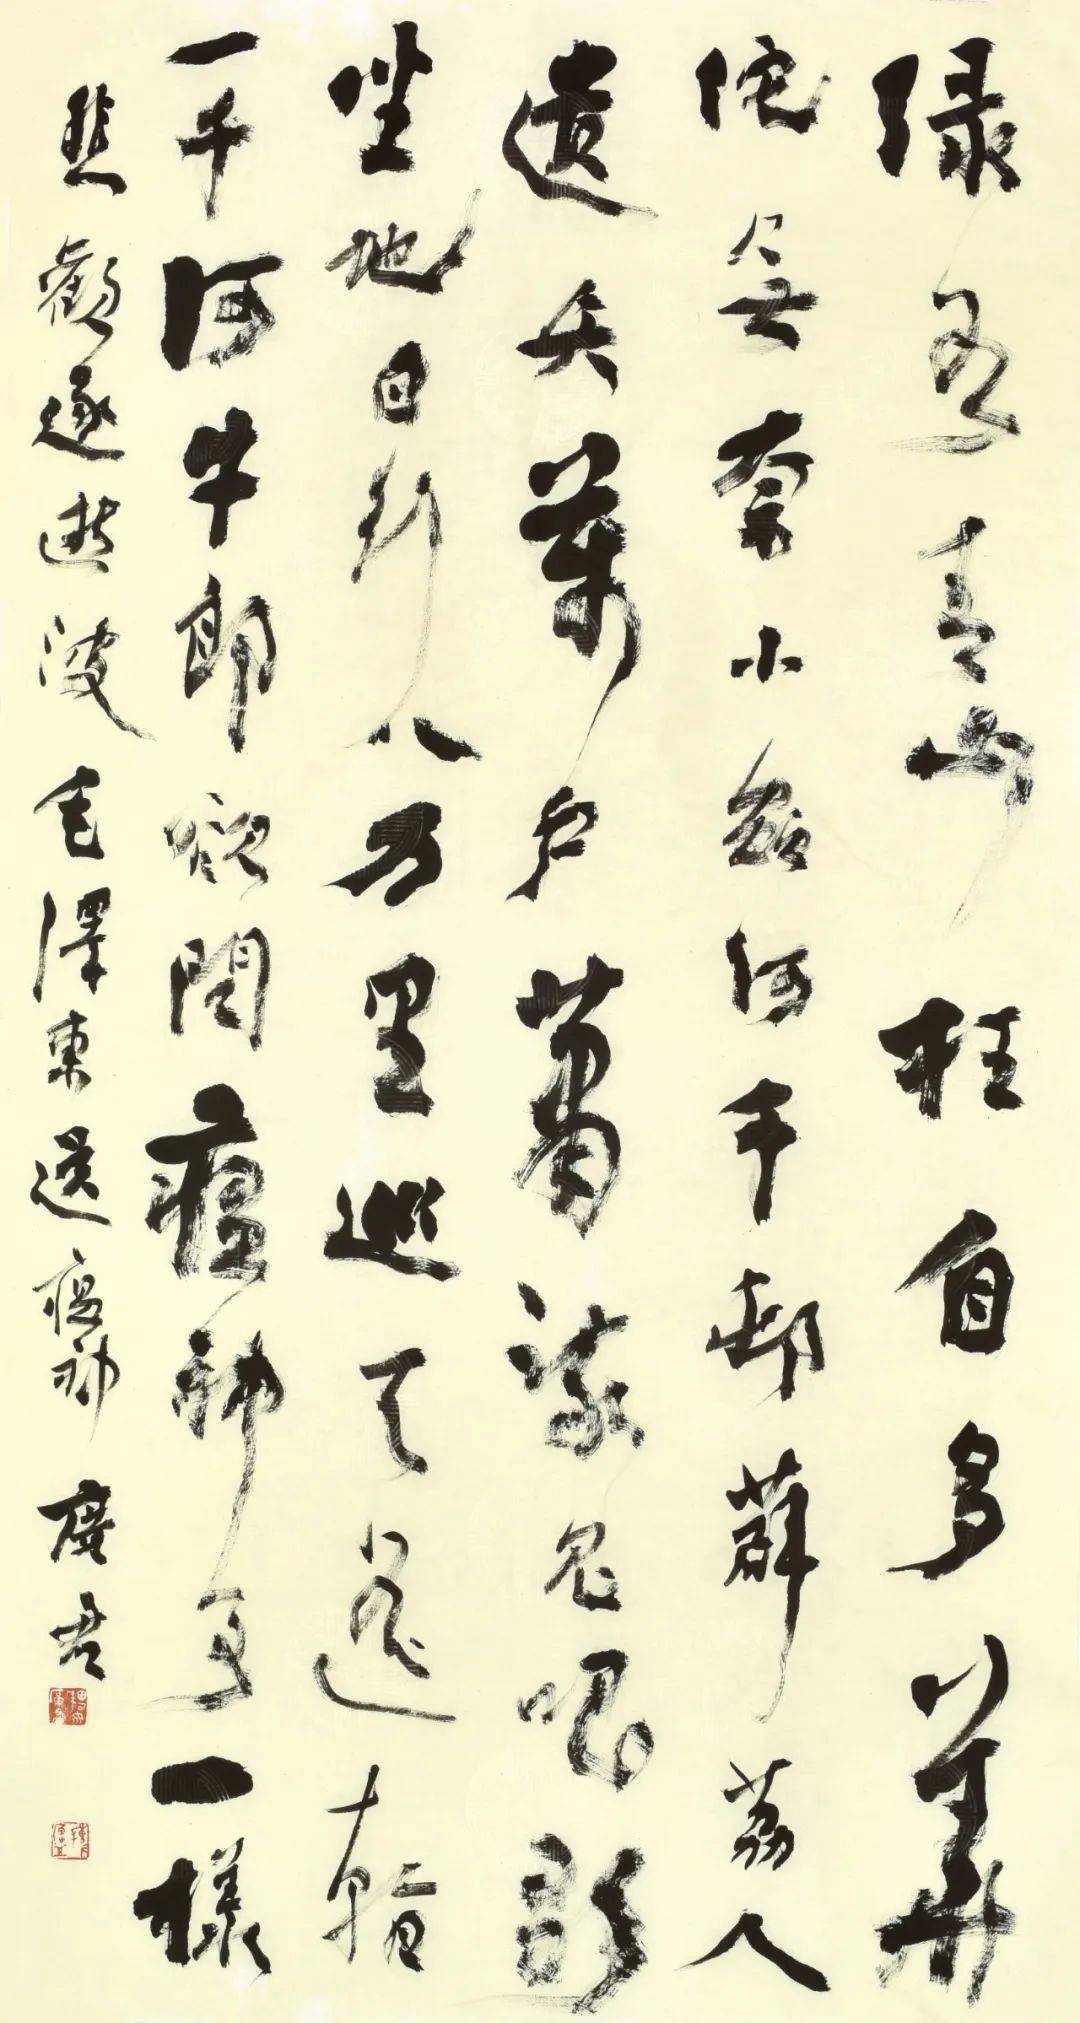 緑水青山枉自多華
佗無奈小蟲何千邨薜荔人
遺矢萬户蕭疏鬼唱歌
坐地日行八万里巡天遥看
一千河牛郎欲問瘟神事一樣
悲歡逐逝波毛澤東送瘟神 廣君